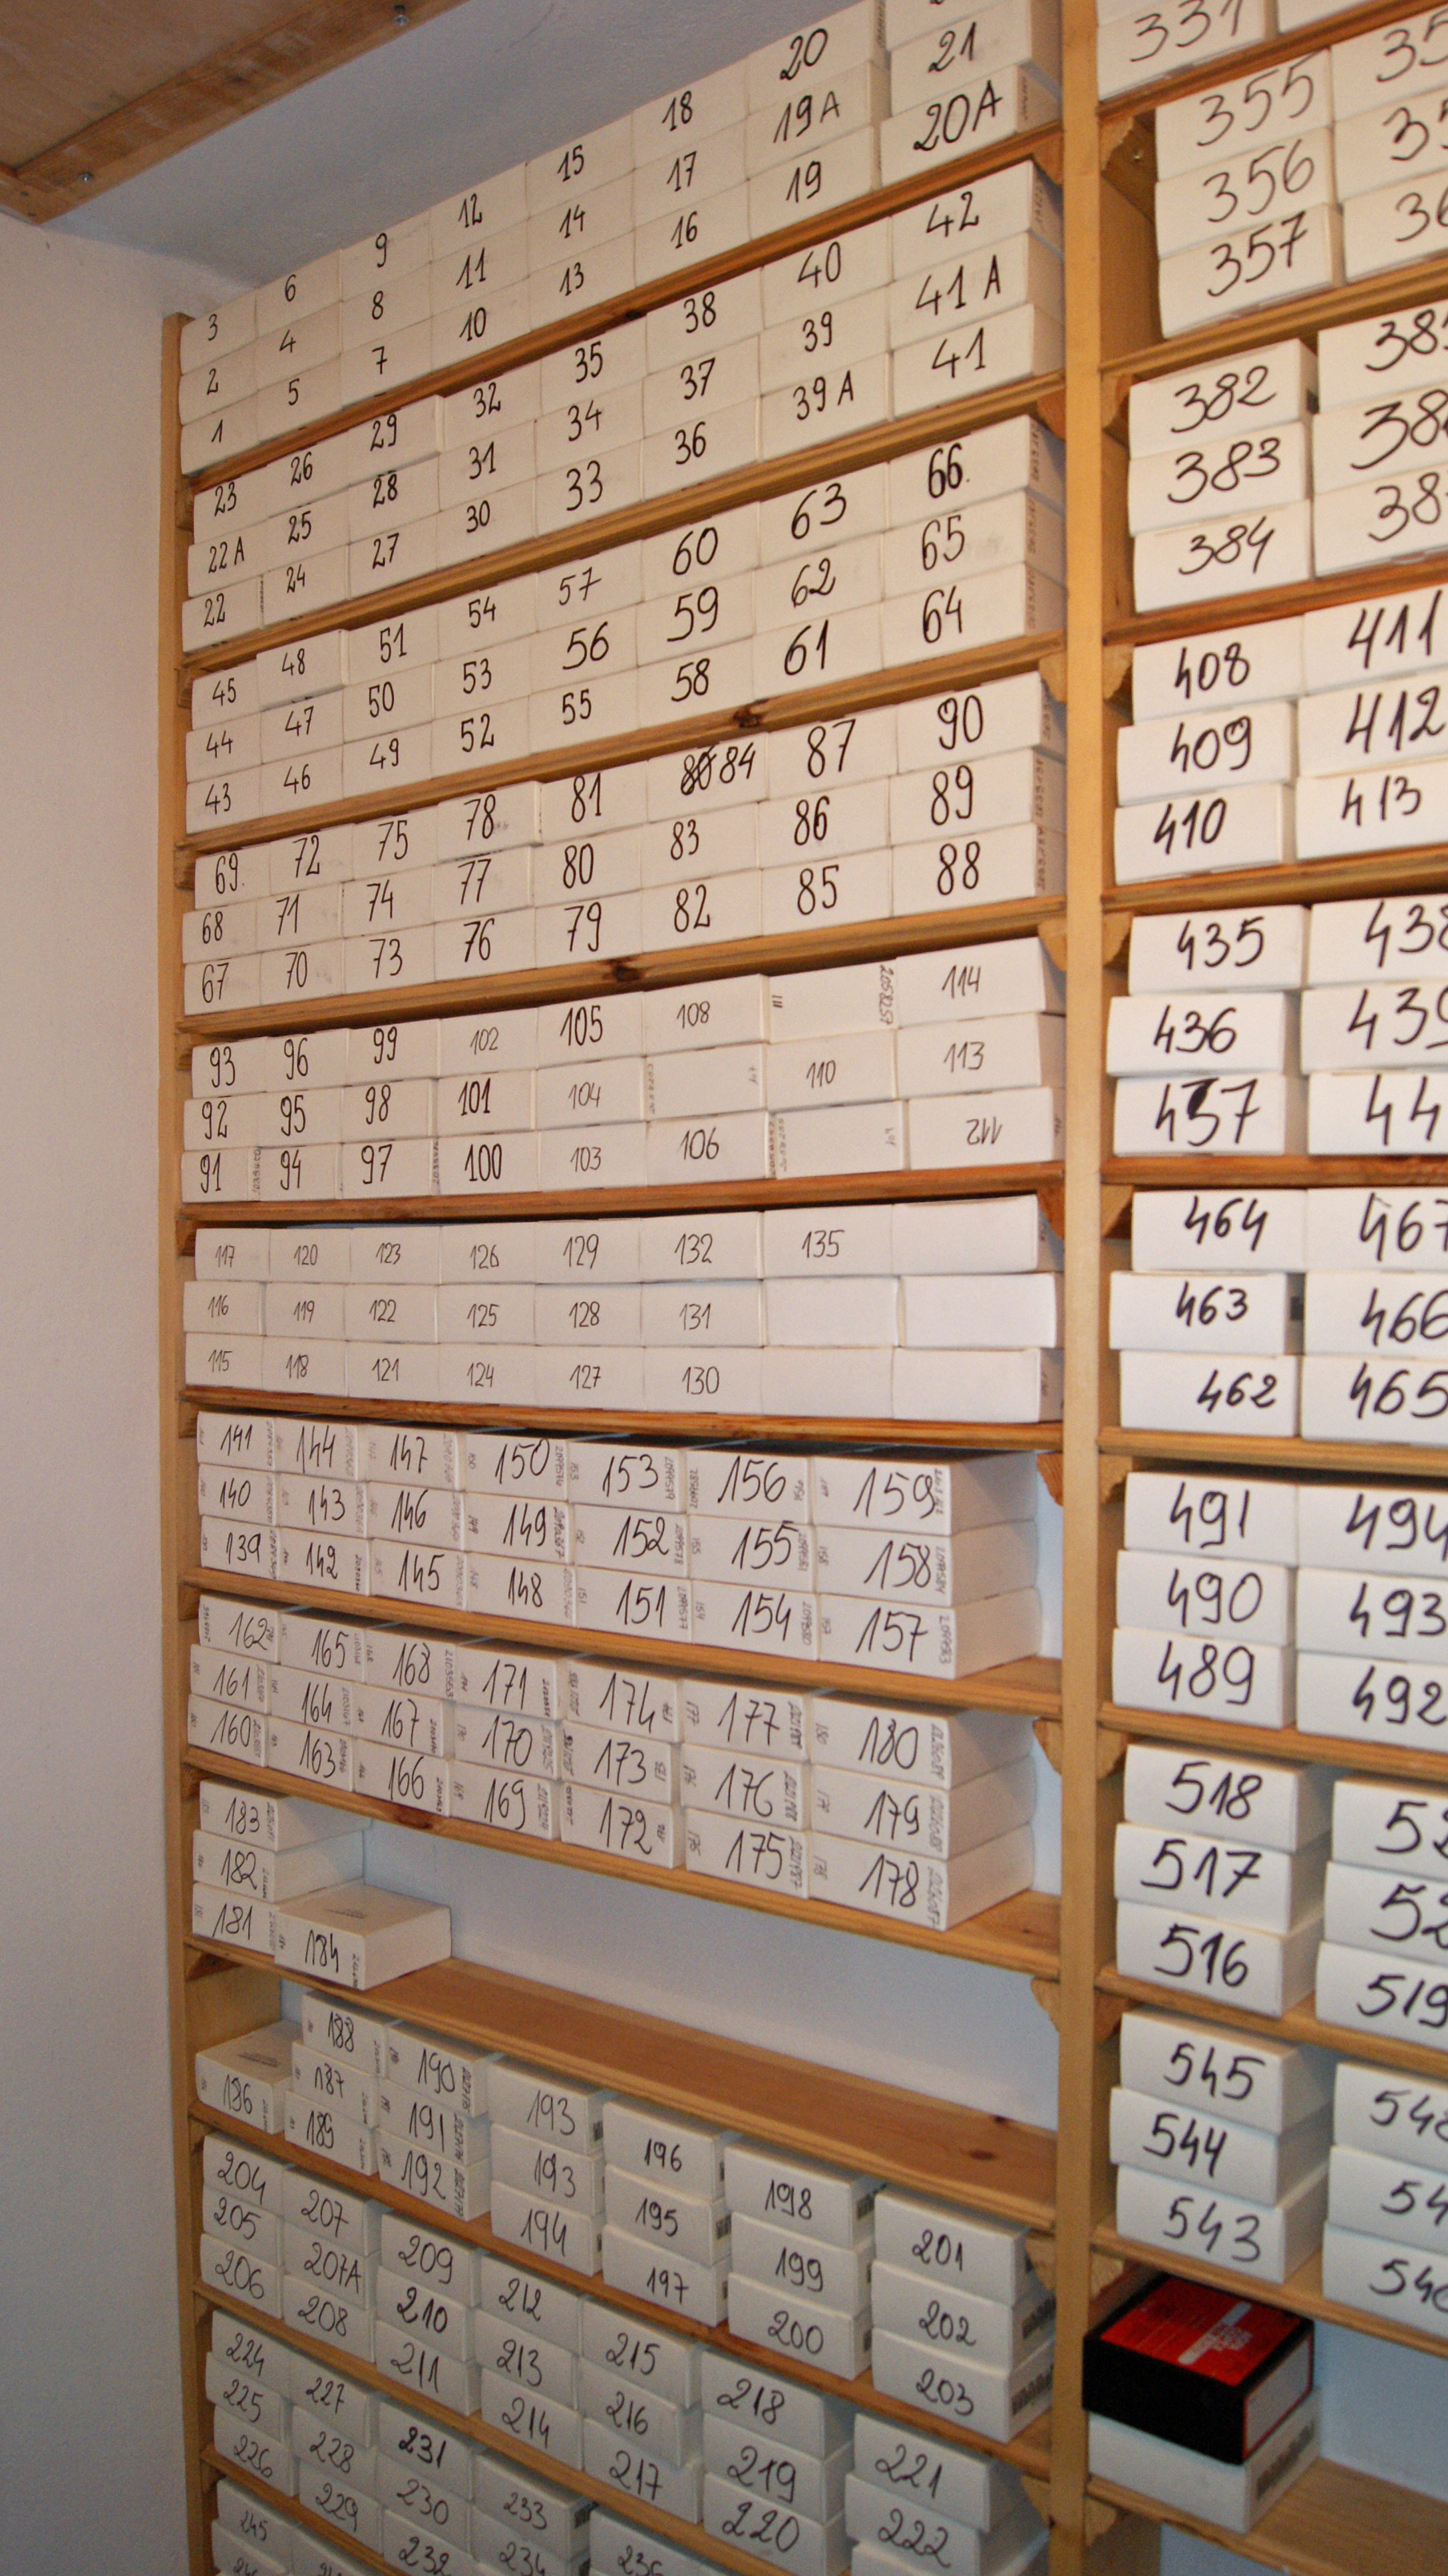 20 21 331
18 19A 20A 355
15 17 19 356
12 14 16 357
9 11 13
6 8 10
3 4 7
2 5
1
23 26 29 32 35 38 40 42
22A 25 28 31 34 37 39 41A
22 24 27 30 33 36 39A 41
382
383
384
45 48 51 54 57 60 63 66.
44 47 50 53 56 59 62 65
43 46 49 52 55 58 61 64
408 411
409 412
410 413
69. 72 75 78 81 84 87 90
68 71 74 77 80 83 86 89
67 70 73 76 79 82 85 88
435 438
436 439
437
93 96 99 102 105 108 111 114
92 95 98 101 104 110 113
91 94 97 100 103 106 112
464 467
463 466
462 465
117 120 123 126 129 132 135
116 119 122 125 128 131
115 118 121 124 127 130
141 144 147 150 153 156 159
140 143 146 149 152 155 158
139 142 145 148 151 154 157
491 494
490 493
489 492
162 165 168 171 174 177 180
161 164 167 170 173 176 179
160 163 166 169 172 175 178
518
517
516 519
183
182
181 184
545
544
543
188 190 193 196 198 201
186 187 191 193 195 199 202
189 192 194 197 200 203
204 207 209 212 215 218 221
205 207A 210 213 216 219 222
206 208 211 214 217 220
224 227 231 233
225 228 230 234
226 229 232
245